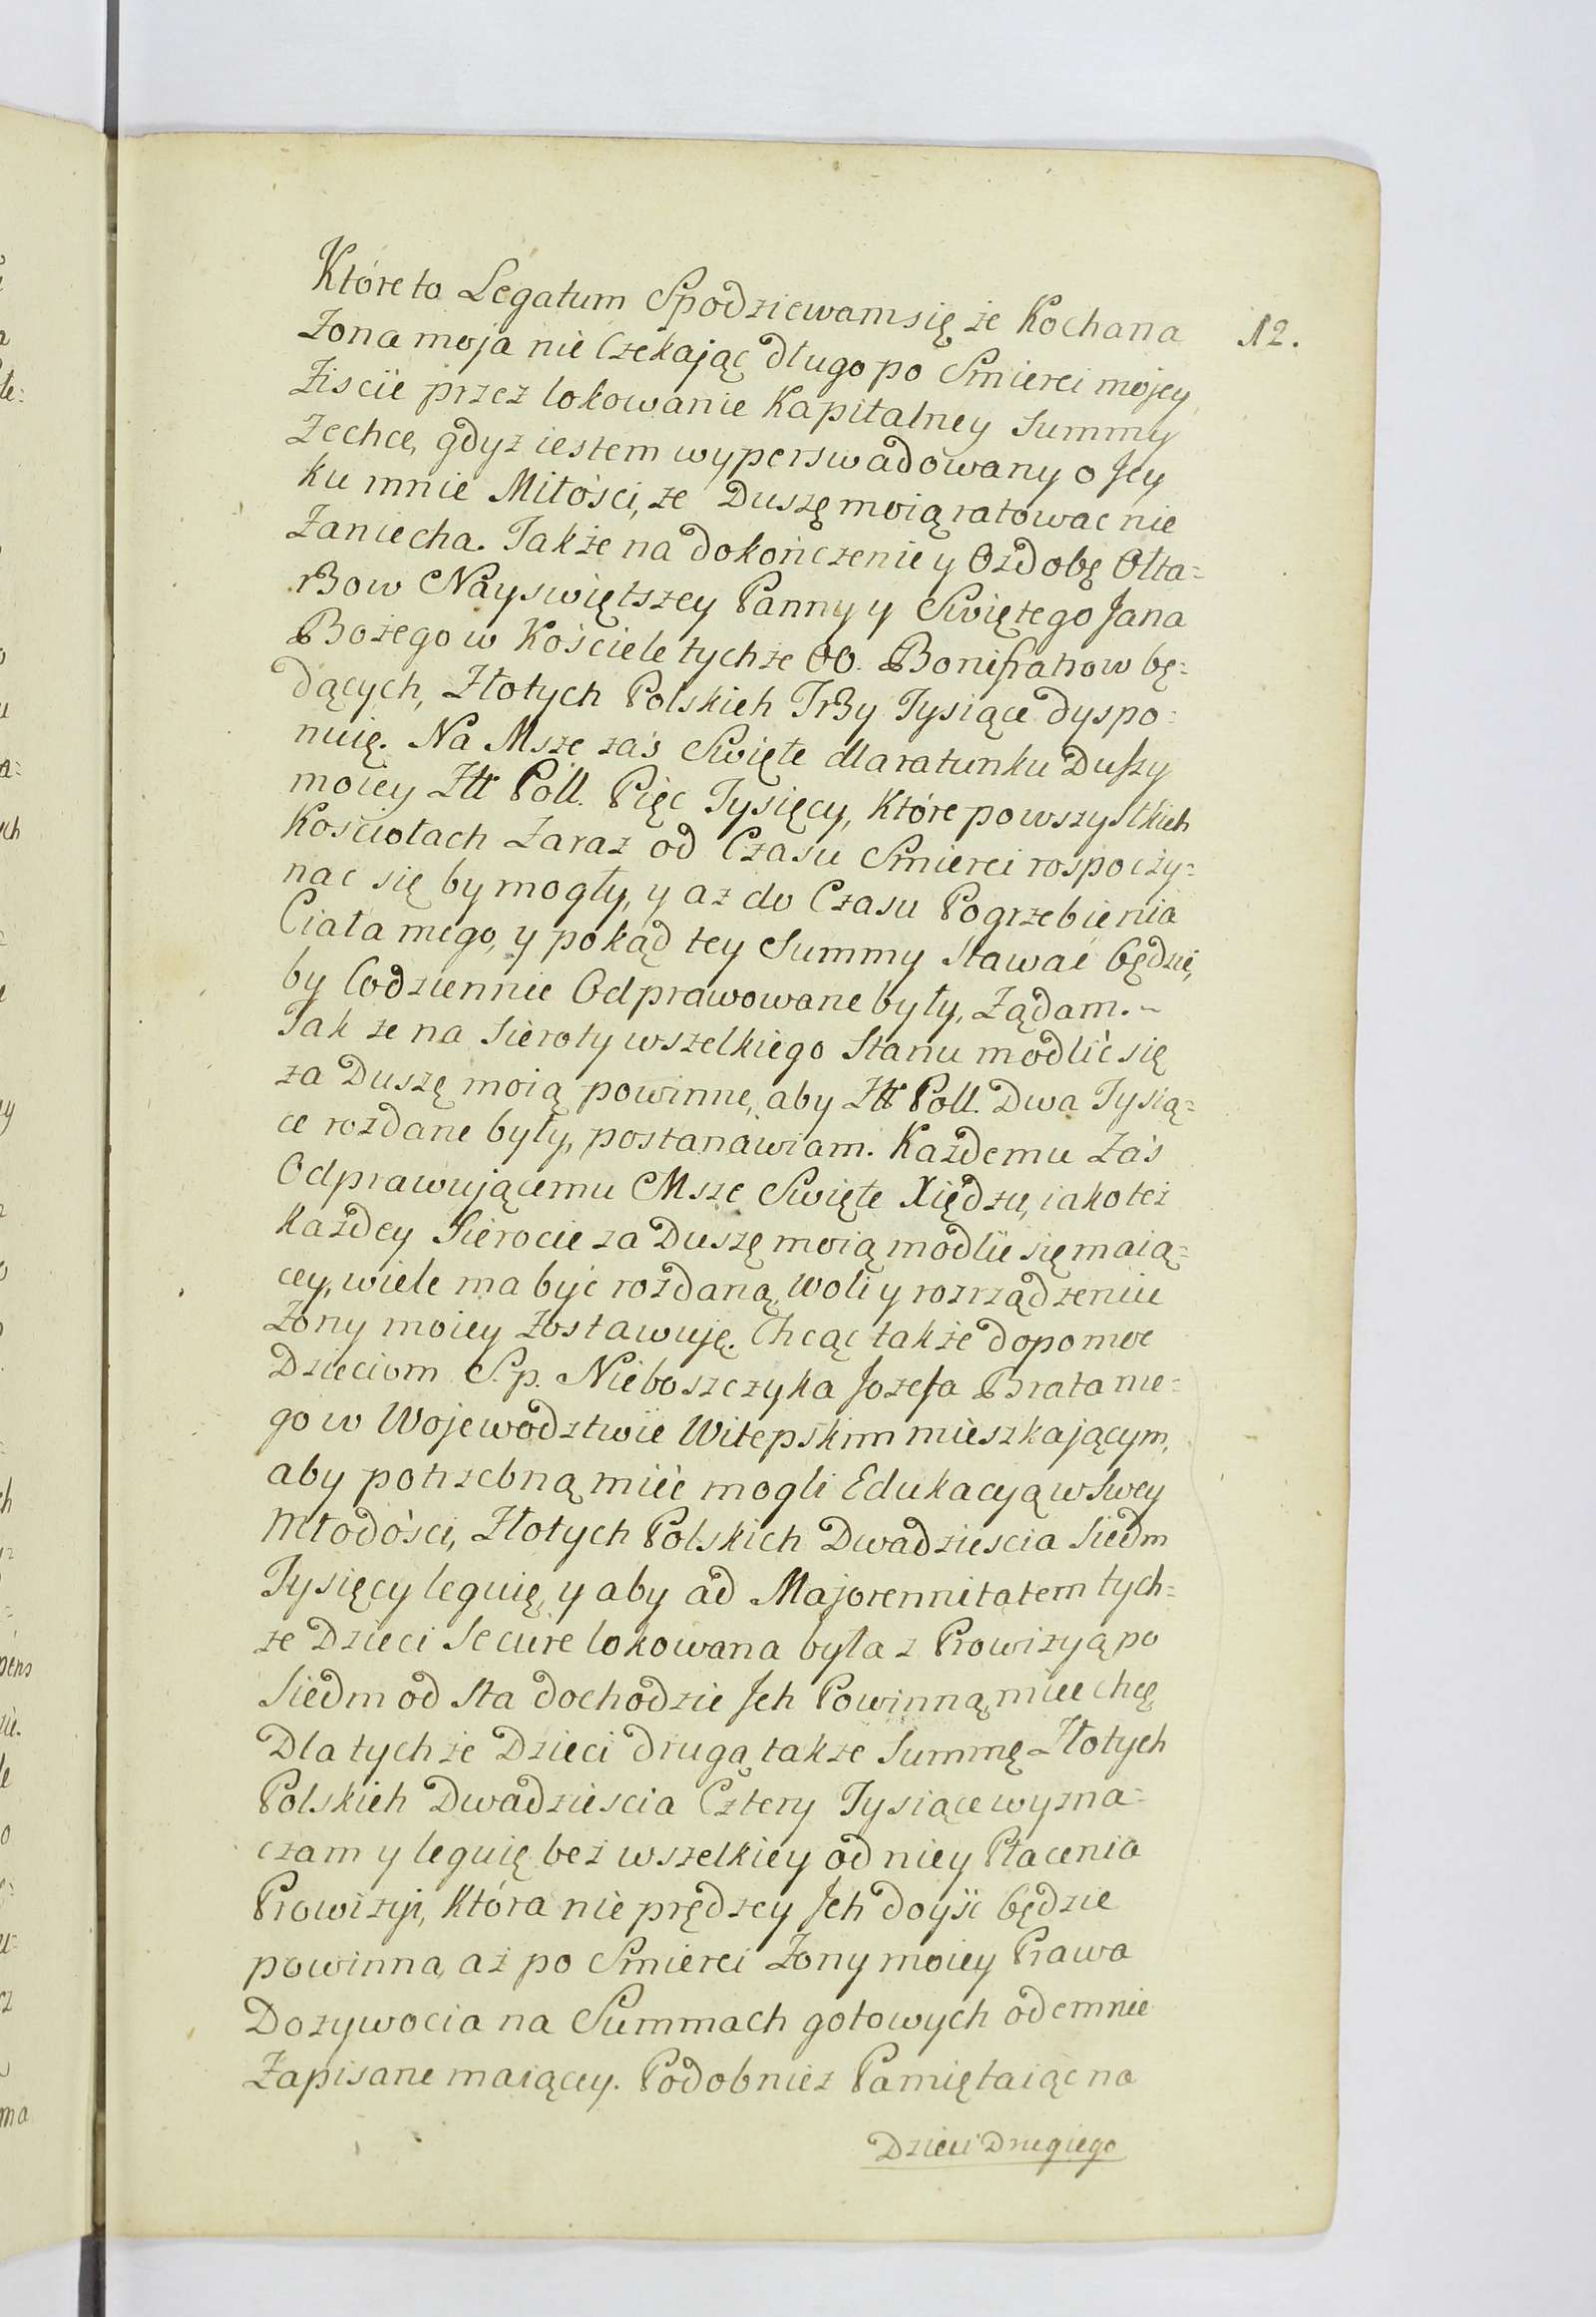 Które to Legatum Spodziewam się że Kochana
Żona moja nie Czekając długo po Smierci mojey
Ziscic przez lokowanie Kapitalney Summy
Zechce, gdyz iestem wyperswadowany o Jey
ku mnie Miłości, że Duszę moią ratowac nie
Zaniecha. Także na dokończenie y Ozdobę Ołta=
rzow Nayswiętszey Panny y Swiętego Jana
Bożego w Kościele tychże OO. Bonifratrow bę=
dących, Złotych Polskich Trzy Tysiące dyspo=
nuię. Na Msze zaś Swięte dla ratunku Duszy
moiey Złł Poll. Pięc Tysięcy, Które po wszystkich
Kosciołach Zaraz od Czasu Smierci rospoczy=
nac się by mogły, y az do Czasu Pogrzebienia
Ciała mego, y pokąd tey Summy stawać będzie,
by Codziennie Odprawowane były, Żądam. ~
Tak że na Sieroty wszelkiego Stanu modlić się
za Duszę moią powinne, aby Złł Poll. Dwa Tysią=
ce rozdane były, postanawiam. Każdemu Zaś
Odprawującemu Msze Swięte Xiędzu, iako też
każdey Sierocie za Duszę moią modlic się maią=
cey, wiele ma być rozdaną, woli y rozrządzeniu
Żony moiey Zostawuję. Chcąc także dopomoc
Dzieciom S. p. Nieboszczyka Jozefa Brata me=
go w Wojewodztwie Witepskim mieszkającym,
aby potrzebną mieć mogli Edukacyą w swey
Młodości, Złotych Polskich Dwadziescia Siedm
Tysięcy leguię, y aby ad Majorennitatem tych=
że Dzieci Secure lokowana była z Prowizyą po
Siedm od sta dochodzic Jch Powinną, miec chcę
Dla tychże Dzieci drugą także Summę Złotych
Polskich Dwadziescia Cztery Tysiące wyzna=
czam y leguię bez wszelkiey od niey Płacenia
Prowizyi, Która nie prędzey Jch doyść będzie
powinna, aż po Smierci Żony moiey Prawa
Dozywocia na Summach gotowych odemnie
Zapisane maiącey. Podobnież Pamiętaiąc na
Dzieci Drugiego
12.